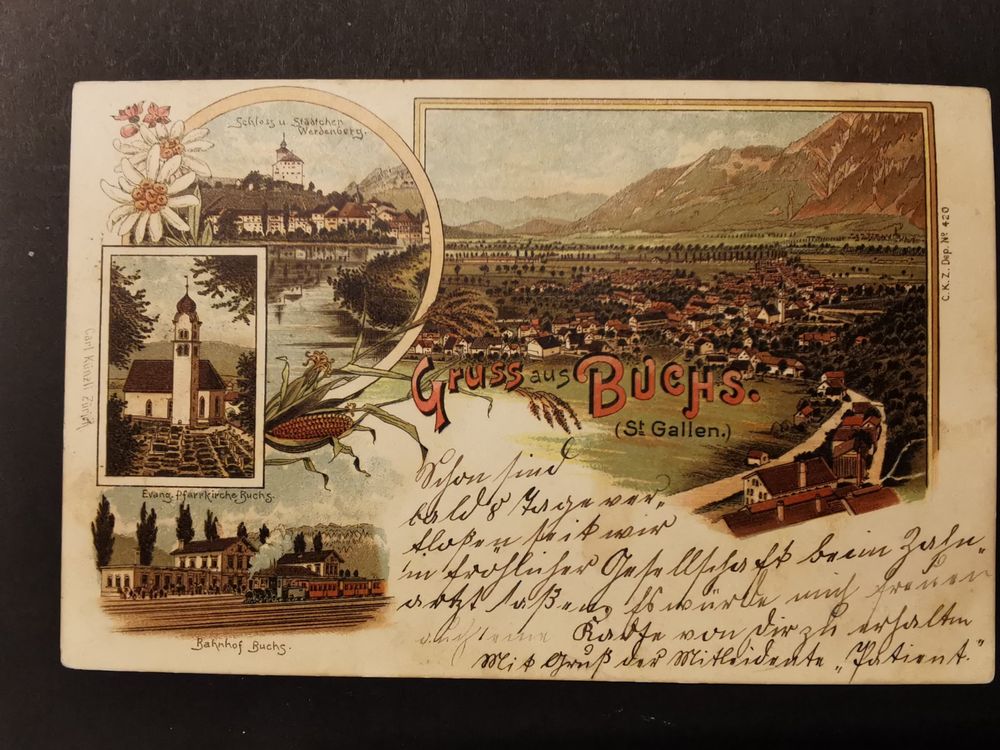 Schloss u. Städtchen
Werdenberg.
Evang. Pfarrkirche Buchs.
Bahnhof Buchs.
Carl Künzli Zürich
C. K. Z. Dep. Nº 420
Gruss aus Buchs.
(St. Gallen.)
Schon sind
bald 8 Tage ver-
floßen seit wir
in fröhlicher Gesellschaft beim Zahn-
arzt saßen. Es würde mich freuen
auch eine Karte von Dir zu erhalten
Mit Gruß der Mitleidente „Patient."